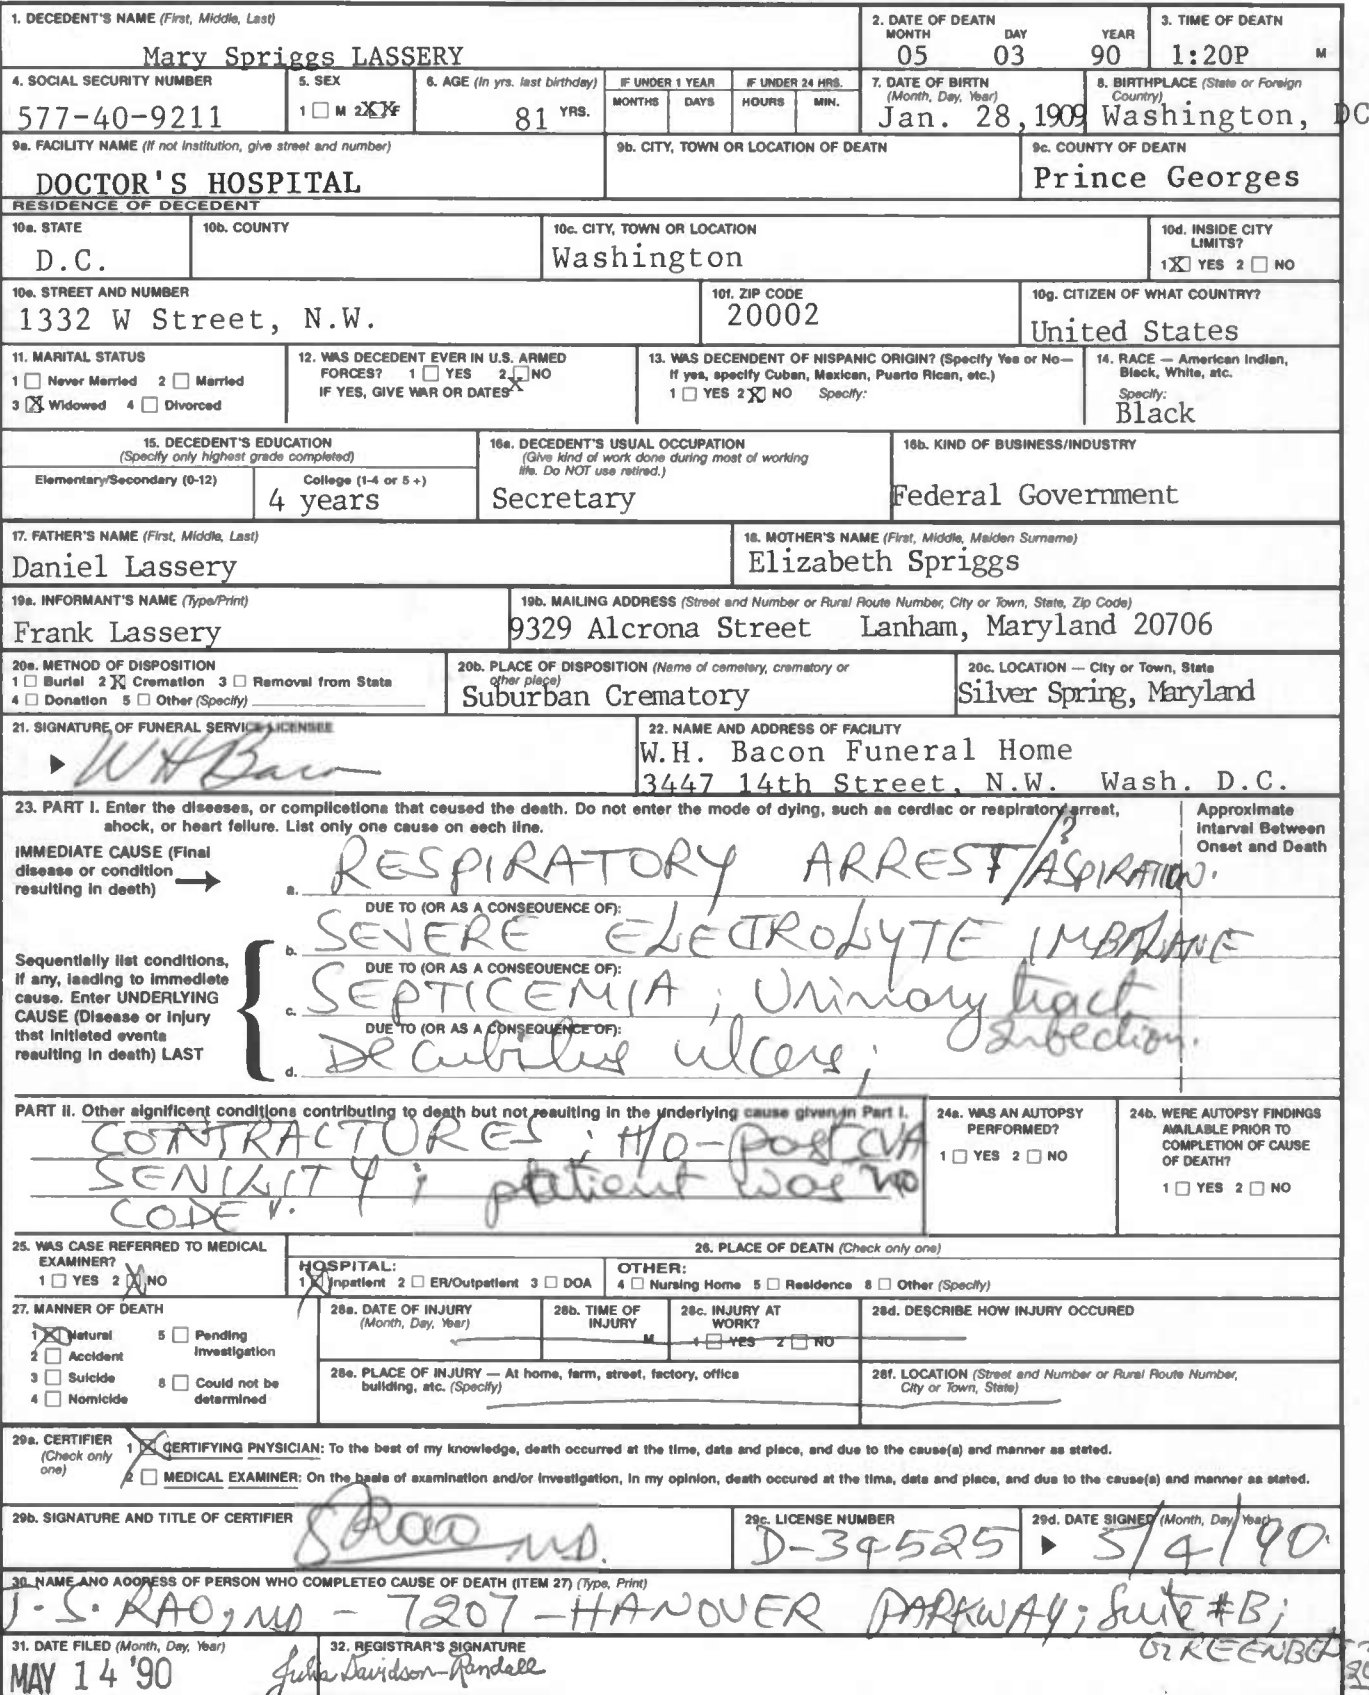 1. DECEDENT'S NAME (First, Middle, Last)
Mary Spriggs LASSERY
2. DATE OF DEATH
MONTH DAY YEAR
05 03 90
3. TIME OF DEATH
1:20P M
4. SOCIAL SECURITY NUMBER
577-40-9211
5. SEX
1 □ M 2 XX F
6. AGE (In yrs. last birthday)
81 YRS.
IF UNDER 1 YEAR
MONTHS DAYS
IF UNDER 24 HRS.
HOURS MIN.
7. DATE OF BIRTH
(Month, Day, Year)
Jan. 28, 1909
8. BIRTHPLACE (State or Foreign
Country)
Washington, DC
9a. FACILITY NAME (If not institution, give street and number)
DOCTOR'S HOSPITAL
9b. CITY, TOWN OR LOCATION OF DEATH
9c. COUNTY OF DEATH
Prince Georges
RESIDENCE OF DECEDENT
10a. STATE
D.C.
10b. COUNTY
10c. CITY, TOWN OR LOCATION
Washington
10d. INSIDE CITY
LIMITS?
1 X YES 2 □ NO
10e. STREET AND NUMBER
1332 W Street, N.W.
10f. ZIP CODE
20002
10g. CITIZEN OF WHAT COUNTRY?
United States
11. MARITAL STATUS
1 □ Never Married 2 □ Married
3 X Widowed 4 □ Divorced
12. WAS DECEDENT EVER IN U.S. ARMED
FORCES? 1 □ YES 2 □ NO
IF YES, GIVE WAR OR DATES X
13. WAS DECENDENT OF NISPANIC ORIGIN? (Specify Yes or No—
If yes, specify Cuban, Mexican, Puerto Rican, etc.)
1 □ YES 2 X NO Specify:
14. RACE — American Indian,
Black, White, atc.
Specify:
Black
15. DECEDENT'S EDUCATION
(Specify only highest grade completed)
Elementary/Secondary (0-12)
College (1-4 or 5 +)
4 years
16a. DECEDENT'S USUAL OCCUPATION
(Give kind of work done during most of working
life. Do NOT use retired.)
Secretary
16b. KIND OF BUSINESS/INDUSTRY
Federal Government
17. FATHER'S NAME (First, Middle, Last)
Daniel Lassery
18. MOTHER'S NAME (First, Middle, Maiden Surname)
Elizabeth Spriggs
19a. INFORMANT'S NAME (Type/Print)
Frank Lassery
19b. MAILING ADDRESS (Street and Number or Rural Route Number, City or Town, State, Zip Code)
9329 Alcrona Street Lanham, Maryland 20706
20a. METNOD OF DISPOSITION
1 □ Burial 2 X Cremation 3 □ Removal from State
4 □ Donation 5 □ Other (Specify)
20b. PLACE OF DISPOSITION (Name of cemetery, crematory or
other place)
Suburban Crematory
20c. LOCATION — City or Town, State
Silver Spring, Maryland
21. SIGNATURE OF FUNERAL SERVICE LICENSEE
WH Bacon
22. NAME AND ADDRESS OF FACILITY
W.H. Bacon Funeral Home
3447 14th Street, N.W. Wash. D.C.
23. PART I. Enter the diseases, or complicetions that ceused the death. Do not enter the mode of dying, such as cerdlac or respiratory arrest,
ahock, or heart fellure. List only one cause on eech line.
Approximate
Intarval Between
Onset and Death
IMMEDIATE CAUSE (Final
disease or condition
resulting in deeth)
a. RESPIRATORY ARREST/?ASPIRATION.
DUE TO (OR AS A CONSEQUENCE OF):
b. SEVERE ELECTROLYTE IMBALANE
Sequentially list conditions,
if any, leading to immediete
cause. Enter UNDERLYING
CAUSE (Disease or injury
that initieted events
resulting in death) LAST
DUE TO (OR AS A CONSEOUENCE OF):
c. SEPTICEMIA; Urinary tract
infection.
DUE TO (OR AS A CONSEQUENCE OF):
d. Decubitus ulcers;
PART II. Other significent conditions contributing to death but not resulting in the underlying cause given in Part I.
CONTRACTURES; H/O-post CVA
SENILITY; patient was "no
CODE".
24a. WAS AN AUTOPSY
PERFORMED?
1 □ YES 2 □ NO
24b. WERE AUTOPSY FINDINGS
AVAILABLE PRIOR TO
COMPLETION OF CAUSE
OF DEATH?
1 □ YES 2 □ NO
25. WAS CASE REFERRED TO MEDICAL
EXAMINER?
1 □ YES 2 X NO
26. PLACE OF DEATH (Check only one)
HOSPITAL:
1 X Inpatient 2 □ ER/Outpatient 3 □ DOA
OTHER:
4 □ Nursing Home 5 □ Residence 8 □ Other (Specify)
27. MANNER OF DEATH
1 X Natural 5 □ Pending
Investigation
2 □ Accident
3 □ Suicide 8 □ Could not be
determined
4 □ Nomicide
28a. DATE OF INJURY
(Month, Day, Year)
28b. TIME OF
INJURY
M
28c. INJURY AT
WORK?
1 □ YES 2 □ NO
28d. DESCRIBE HOW INJURY OCCURED
28e. PLACE OF INJURY — At home, farm, street, factory, office
building, atc. (Specify)
28f. LOCATION (Street and Number or Rural Route Number,
City or Town, State)
29a. CERTIFIER
(Check only
one)
1 X CERTIFYING PNYSICIAN: To the best of my knowledge, death occurred at the time, data and place, and due to the cause(a) and manner as stated.
2 □ MEDICAL EXAMINER: On the basis of examination and/or investigation, in my opinion, death occured at the tima, data and place, and due to the cause(a) and manner as stated.
29b. SIGNATURE AND TITLE OF CERTIFIER
SRao MD.
29c. LICENSE NUMBER
D-34525
29d. DATE SIGNED (Month, Day, Year)
5/4/90
30. NAME ANO AOORESS OF PERSON WHO COMPLETEO CAUSE OF DEATH (ITEM 27) (Type, Print)
T. S. RAO, MD - 7207 - HANOVER PARKWAY; Suite #B;
GREENBELT
31. DATE FILED (Month, Day, Year)
MAY 14 '90
32. REGISTRAR'S SIGNATURE
Julia Davidson-Randall